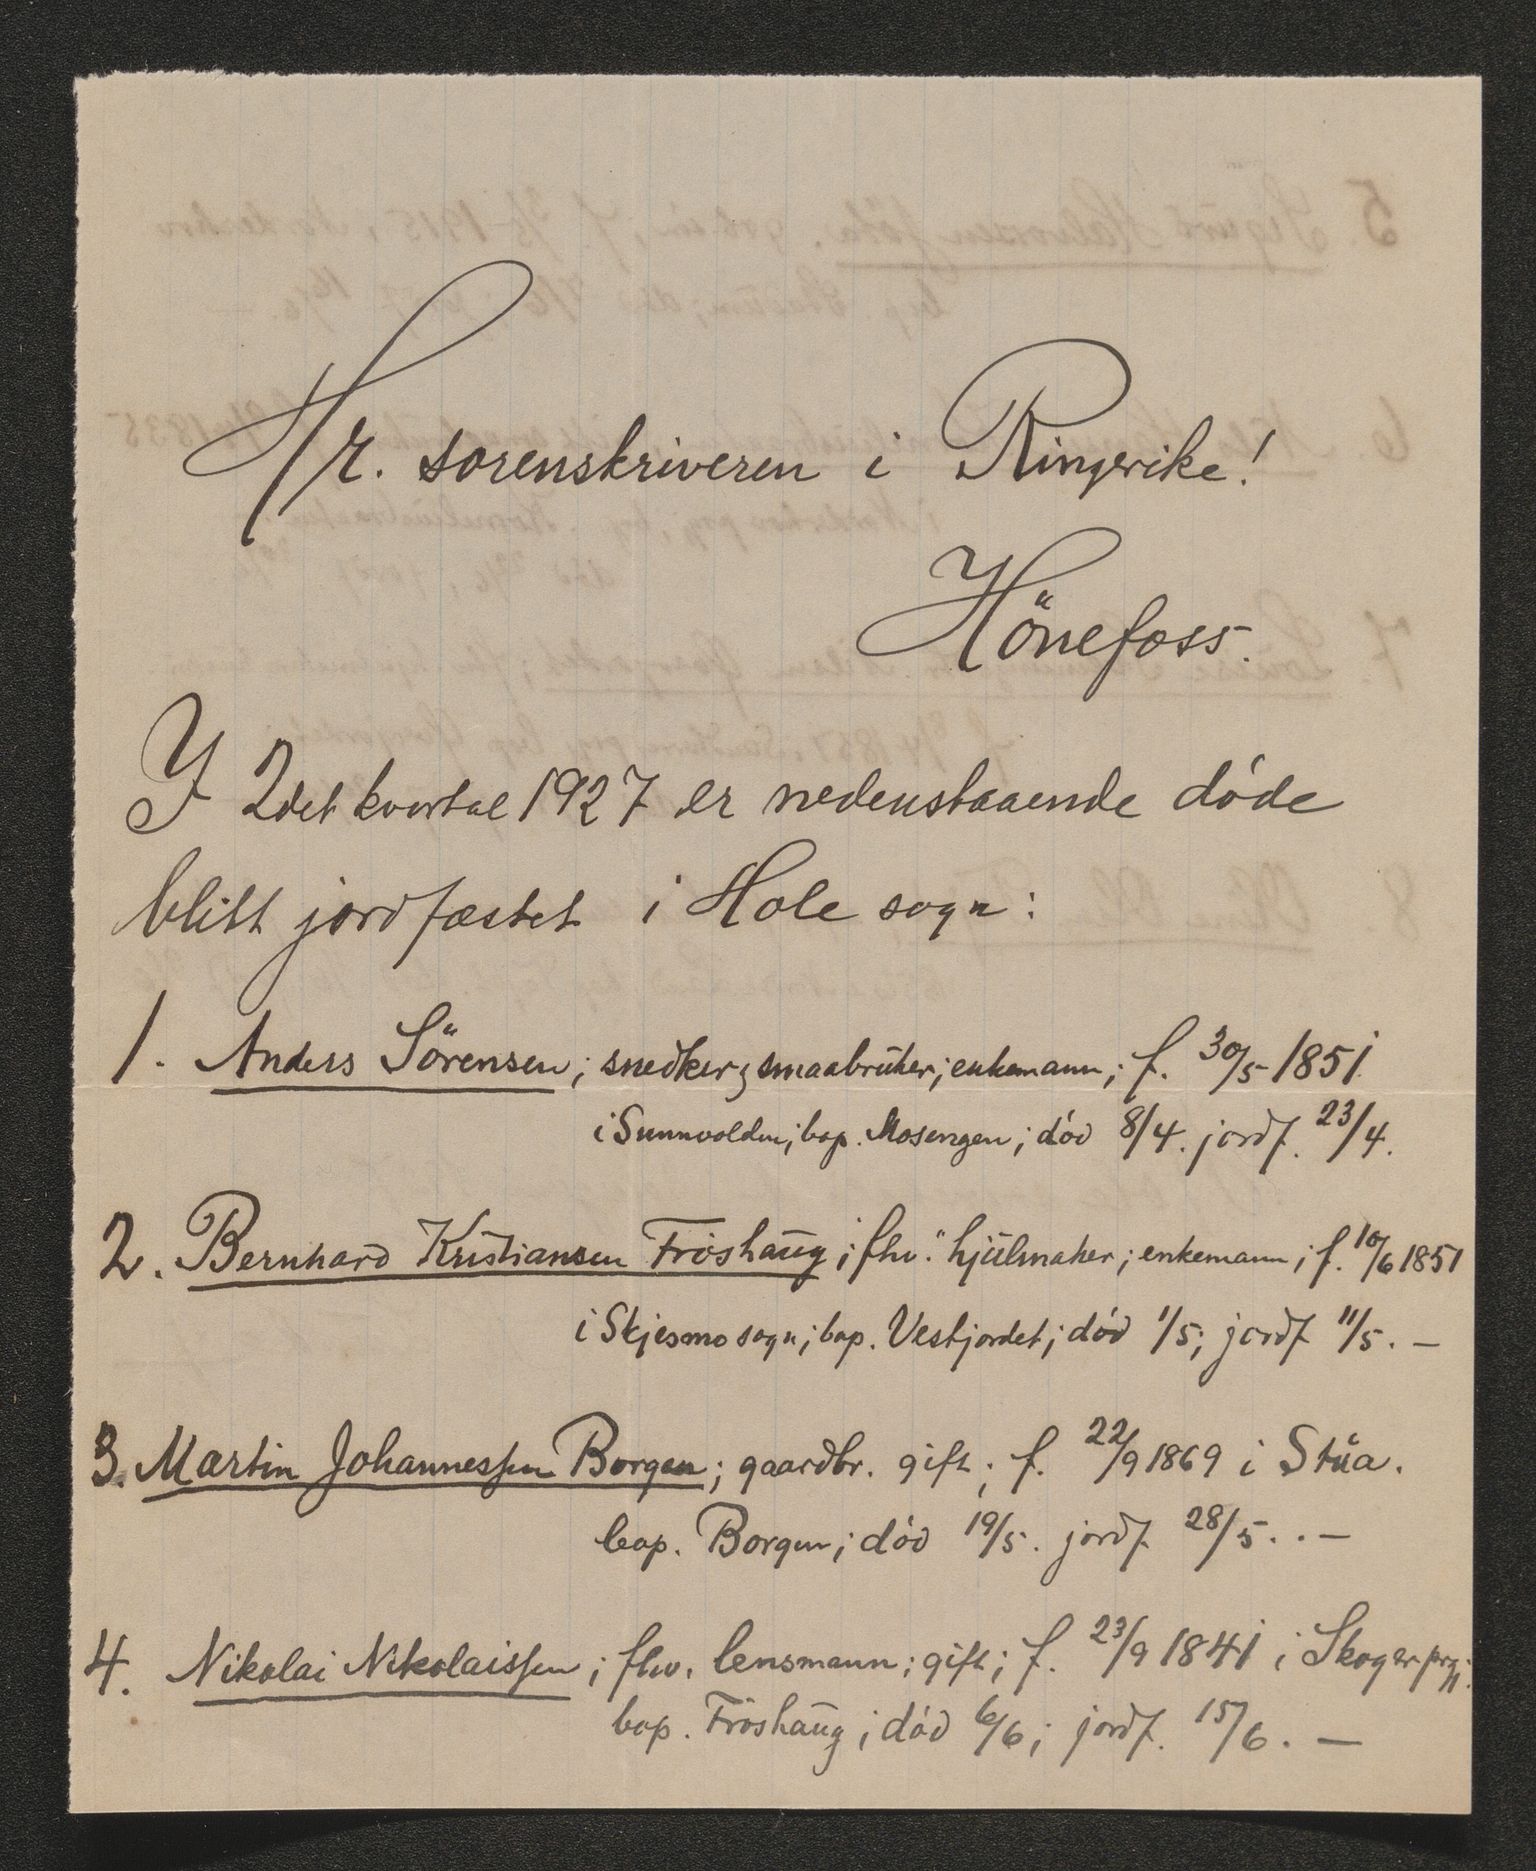 Hr. sorenskriveren i Ringerike!
Hönefoss.
I 2det kvartal 1927 er nedenstaaende døde
blitt jordfæstet i Hole sogn:
1. Anders Sörensen; snedker, smaabruker; enkemann; f. 30/5 1851
i Sunnvolden; bop. Mosengen; død 8/4. jordf. 23/4.
2. Bernhard Kristiansen Fröshaug; fhv. hjulmaker; enkemann; f. 10/6 1851
i Skjesmo sogn; bop. Vestjordet; død 1/5; jordf 11/5. —
3. Martin Johannessen Borgen; gaardbr. gift; f. 22/9 1869 i Stua.
bop. Borgen; død 19/5. jordf. 28/5. . —
4. Nikolai Nikolaissen; fhv. lensmann; gift; f. 23/9 1841 i Skoger prg;
bop. Fröshaug; død 6/6; jordf. 15/6. —